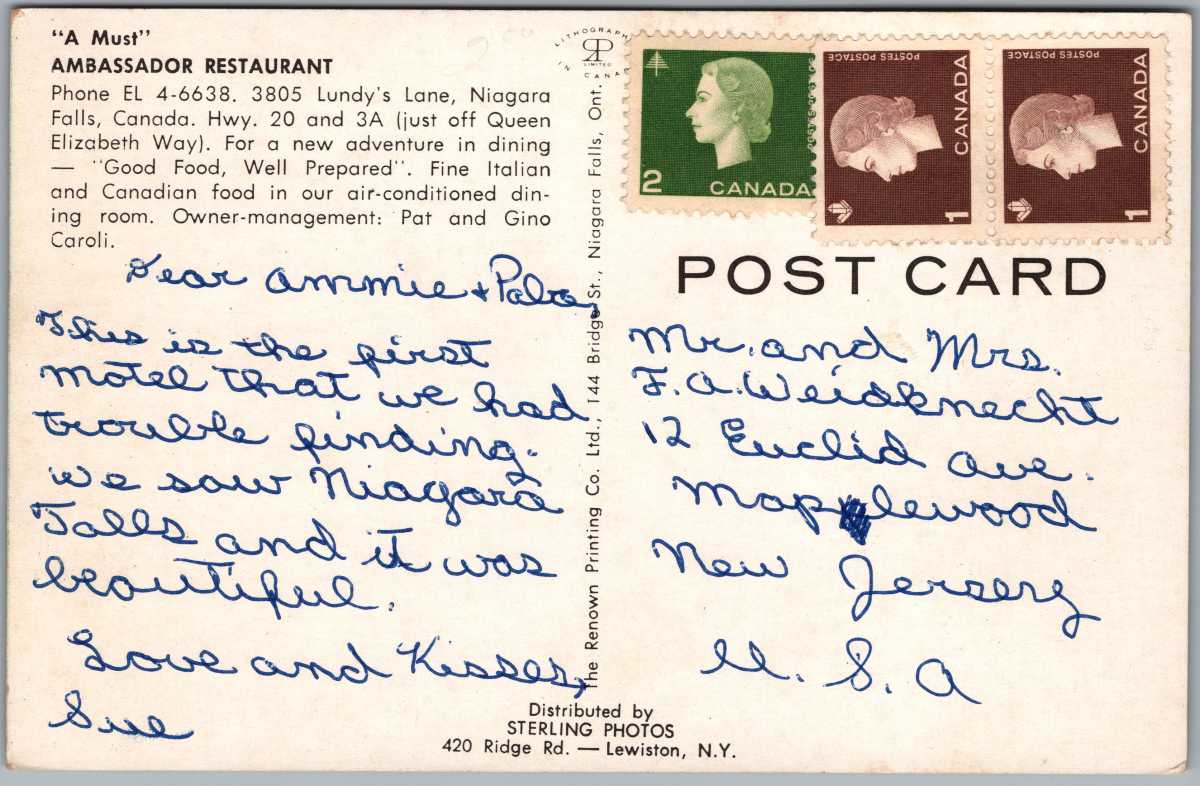 "A Must"
AMBASSADOR RESTAURANT
Phone EL 4-6638. 3805 Lundy's Lane, Niagara
Falls, Canada. Hwy. 20 and 3A (just off Queen
Elizabeth Way). For a new adventure in dining
— "Good Food, Well Prepared". Fine Italian
and Canadian food in our air-conditioned din-
ing room. Owner-management: Pat and Gino
Caroli.
Dear Ammie + Paba,
This is the first
motel that we had
trouble finding.
We saw Niagara
Falls and it was
beautiful.
Love and Kisses,
Sue
LITHOGRAPHED
RP
LIMITED
IN CANADA
The Renown Printing Co. Ltd., 144 Bridge St., Niagara Falls, Ont.
2 CANADA
POSTES POSTAGE
CANADA
1
POSTES POSTAGE
CANADA
1
POST CARD
Mr. and Mrs.
F. A. Weidknecht
12 Euclid Ave.
Maplewood
New Jersery
U. S. A
Distributed by
STERLING PHOTOS
420 Ridge Rd. — Lewiston, N.Y.